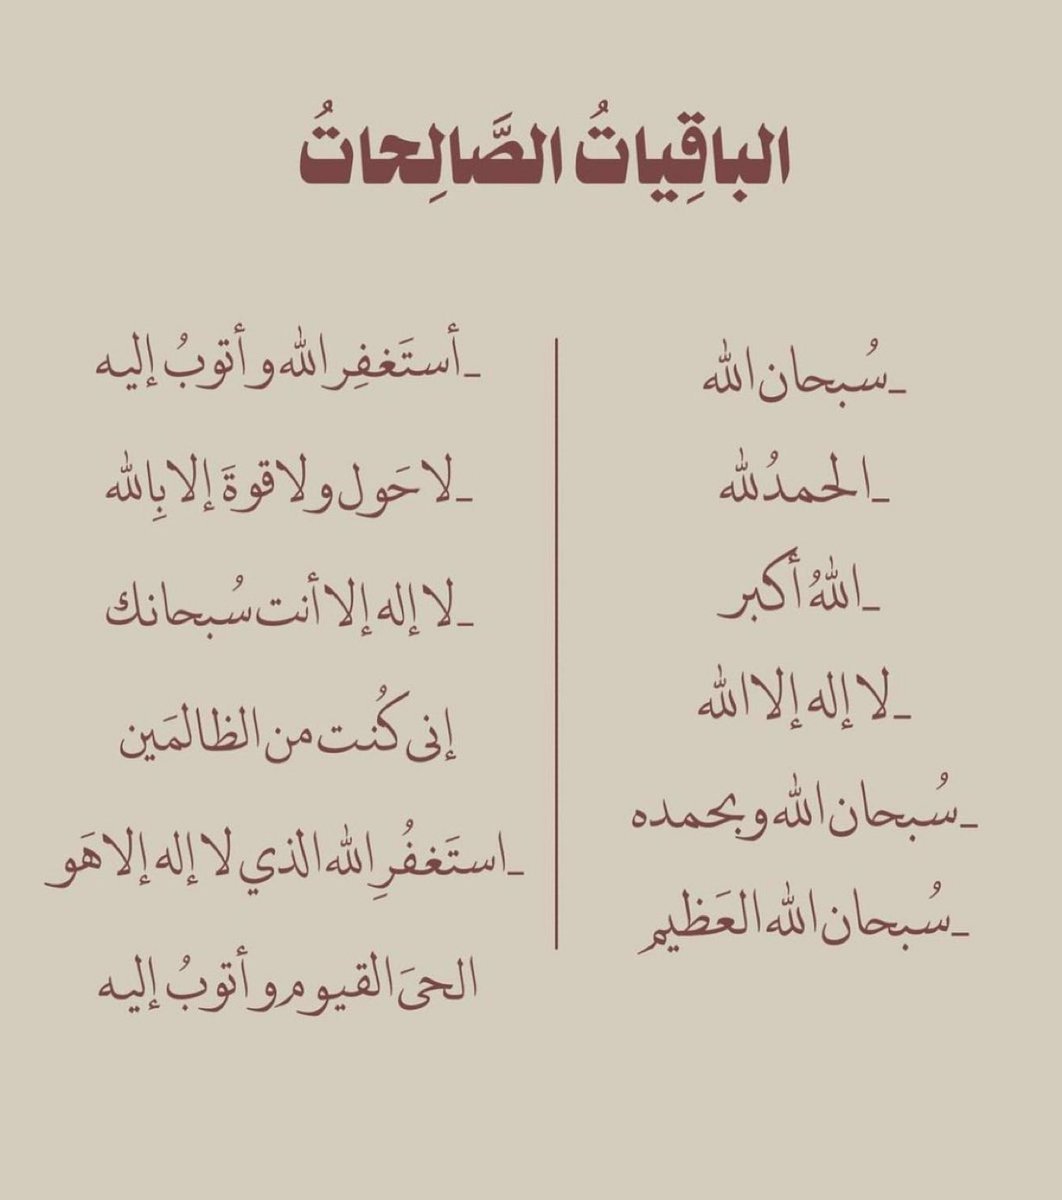 الباقِياتُ الصَّالِحاتُ
_سُبحان الله
_الحمدُ لله
_اللهُ أكبر
_لا إله إلا الله
_سُبحان الله وبحمده
_سُبحان الله العَظيم
_أستَغفِر الله وأتوبُ إليه
_لا حَول ولا قوةَ إلا بِالله
_لا إله إلا أنت سُبحانك
إنى كُنت من الظالمَين
_استَغفُرِ الله الذي لا إله إلا هَو
الحىَ القيوم وأتوبُ إليه